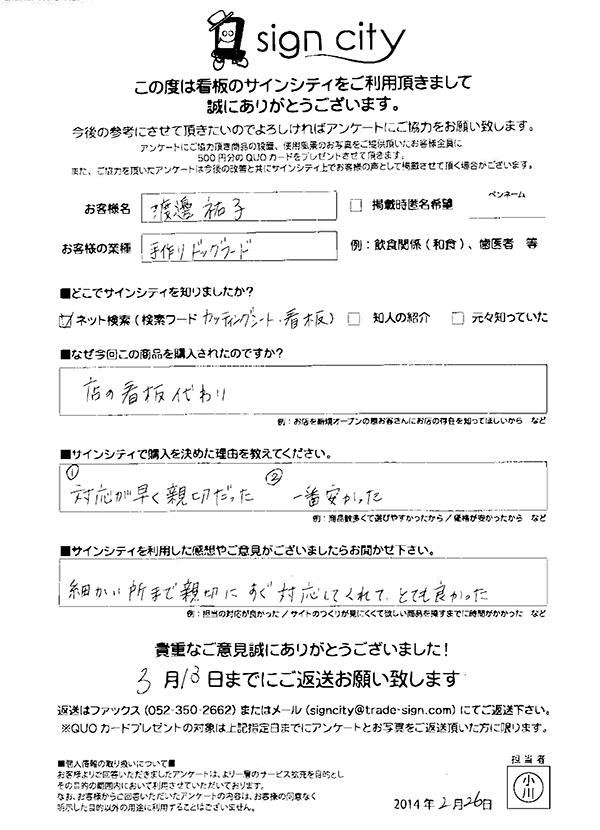 sign city
この度は看板のサインシティをご利用頂きまして
誠にありがとうございます。
今後の参考にさせて頂きたいのでよろしければアンケートにご協力をお願い致します。
アンケートにご協力頂き商品の設置、使用風景のお写真をご提供頂いたお客様全員に
500円分のQUOカードをプレゼントさせて頂きます。
また、ご協力を頂いたアンケートは今後の改善と共にサインシティ上でお客様の声として掲載させて頂く場合がございます。
お客様名 渡邉 祐子 □ 掲載時匿名希望 ペンネーム
お客様の業種 手作りドッグフード 例：飲食関係（和食）、歯医者 等
■どこでサインシティを知りましたか？
☑ネット検索（検索ワード カッティングシート・看板） □ 知人の紹介 □ 元々知っていた
■なぜ今回この商品を購入されたのですか？
店の看板代わり
例：お店を新規オープンの為お客さんにお店の存在を知ってほしいから など
■サインシティで購入を決めた理由を教えてください。
① 対応が早く親切だった ② 一番安かった
例：商品数多くて選びやすかったから／価格が安かったから など
■サインシティを利用した感想やご意見がございましたらお聞かせ下さい。
細かい所まで親切にすぐ対応してくれて、とても良かった
例：担当の対応が良かった／サイトのつくりが見にくくて欲しい商品を探すまでに時間がかかった など
貴重なご意見誠にありがとうございました！
3月13日までにご返送お願い致します
返送はファックス（052-350-2662）またはメール（signcity@trade-sign.com）にてご返送下さい。
※QUOカードプレゼントの対象は上記指定日までにアンケートとお写真をご返送頂いた方に限ります。
■個人情報の取り扱いについて■
お客様よりご回答いただきましたアンケートは、より一層のサービス拡充を目的とし
その目的の範囲内において利用させていただいております。
なお、お客様からご回答いただいたアンケートの内容は、お客様の同意なく
明示した目的以外の用途に利用することはございません。
担当者
小川
2014年2月26日